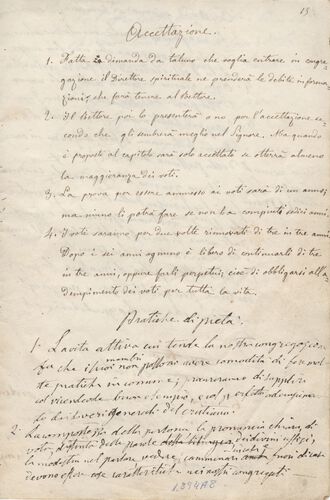 15
Accettazione.
1. Fatta la dimanda da taluno che voglia entrare in congre-
gazione il Direttore spirituale ne prenderà le debite informa-
zioni, che farà tenere al Rettore.
2. Il Rettore poi lo presenterà o no per l'accettazione se-
condo che gli sembrerà meglio nel Signore. Ma quando
è proposto al capitolo sarà solo accettato se otterrà almeno
la maggioranza dei voti.
3. La prova per essere ammesso ai voti sarà di un anno;
ma niuno li potrà fare se non ha compiuto sedici anni.
4. I voti saranno per due volte rinnovati di tre in tre anni.
Dopo i sei anni ognuno è libero di continuarli di tre
in tre anni, oppure farli perpetui, cioè di obbligarsi all'a-
dempimento dei voti per tutta la vita.
Pratiche di pietà.
1. La vita attiva cui tende la nostra congregazione
fa che i suoi membri non possano avere comodità di far molte
pratiche in comune; procureranno di supplire
col vicendevole buon esempio, e col perfetto adempimen-
to dei doveri generali del cristiano.
2. La compostezza della persona, la pronuncia chiara, di-
vota, distinta delle parole
la modestia nel parlare, vedere, camminare in casa e fuori di casa
devono essere cose caratteristiche nei nostri congregati
1.394A8